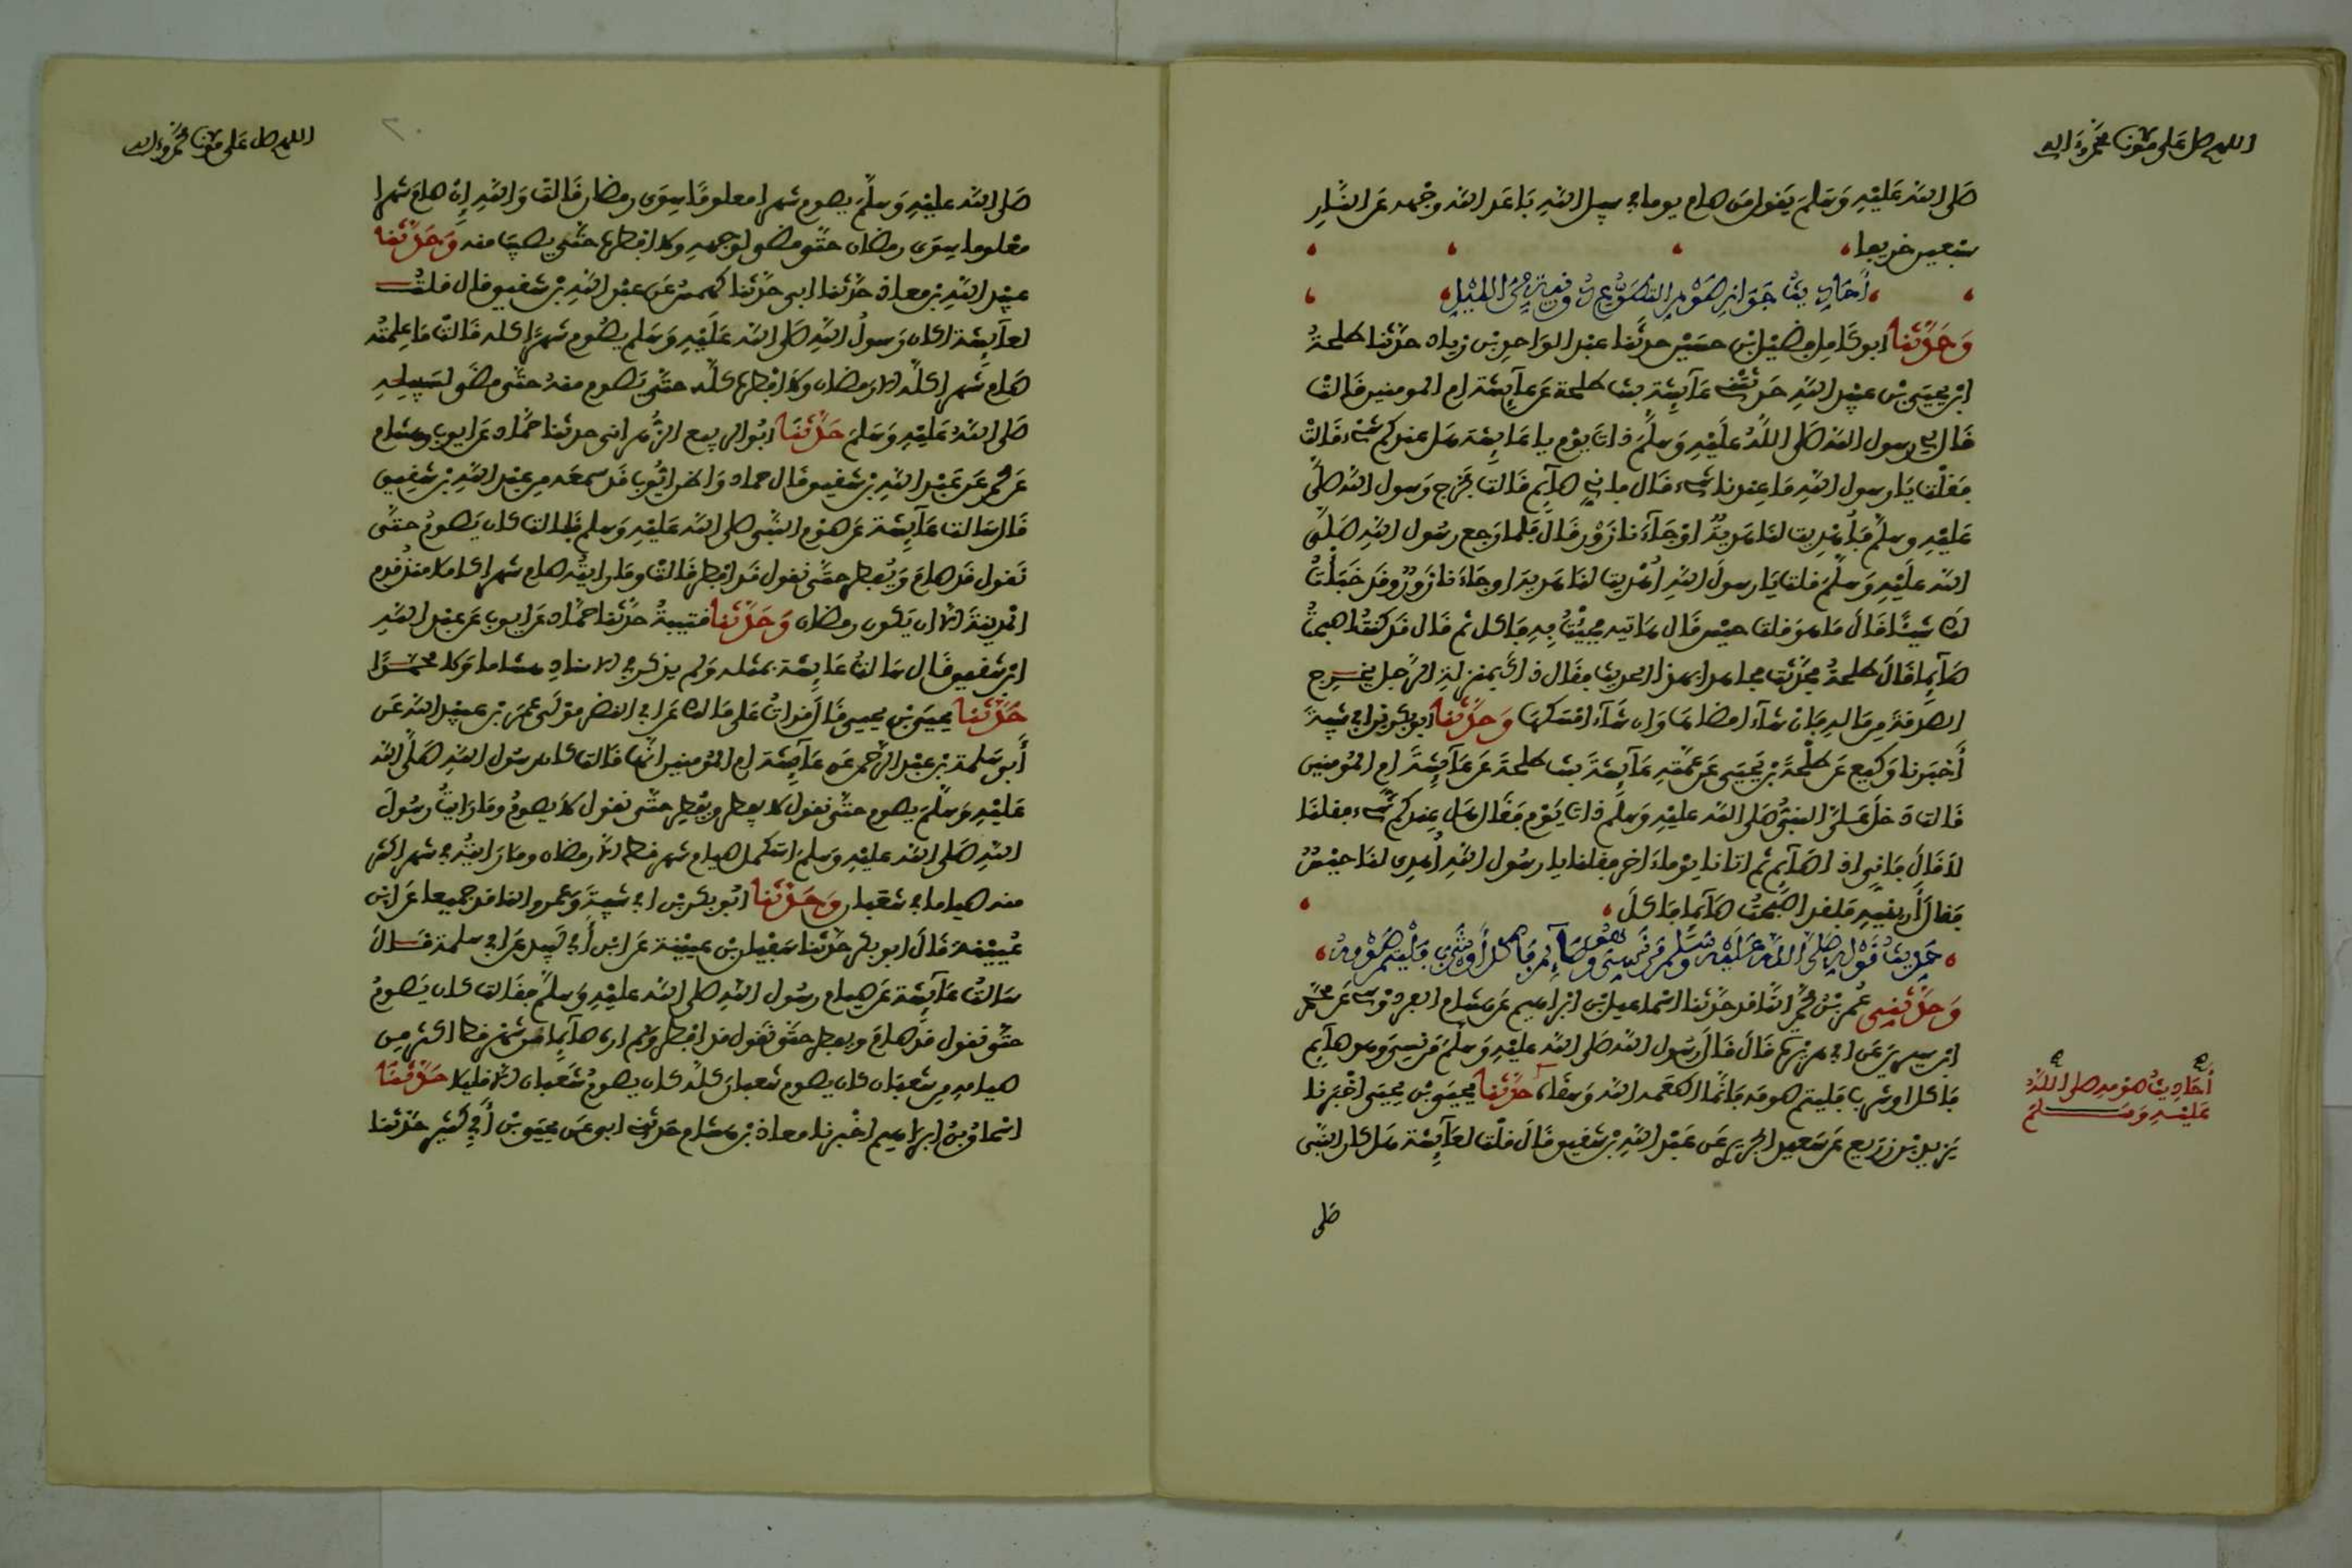 اللهم صل على سيدنا محمد وءاله
صَلى الله عَلَيْهِ وَسَلمَ يَقول مَن صام يوما في سبيل اللهِ بَاعَد الله وجْهه عَن النَّارِ
سبعين خريفا
أَحَادِيثُ جَوَازِ صَوْمِ التَّطَوُّعِ دُونَ نِيَّةٍ مِنَ اللَّيْلِ
وَحَدَّثَنَا ابو كَامِل فضَيْل ابْن حسَيْن حدثَنا عبْد الوَاحِد بْن زياد حدَّثنا طلحةُ
ابْن يحيَى بْن عبَيْد اللهِ حَدثتْنِي عَآئِشَة بنت طلحة عَن عَآئِشَة ام المومنين قَالتْ
قَال لي رسول الله صَلى اللَّهُ عَلَيْهِ وَسلمَ ذات يَوْم يا عَائِشَة هَل عندكم شَيْء قَالتْ
فقلْت يَا رسول اللهِ مَا عِندنا شَيء قَال فاني صآئم قَالت فخرج رَسول الله صَلى
عَليْهِ وسلم فأهْدِيت لنَا هَدِيةٌ اوْ جَآءَنا زَوْر قَال فَلما رجع رسُول اللهِ صَلى
الله عَلَيْهِ وَسلمَ قلت يَا رسولَ اللهِ أُهْدِيت لنَا هَدية او جَآءَنا زَوْرٌ وقَد خَبَأْتُ
لك شَيْئًا قَالَ مَا هوَ قلت حيْس قَال هَاتيه فجِئْتُ بهِ فأكل ثم قَال قَد كنتُ اصبحتُ
صَآئِما قَالَ طلحةُ فحدَّثت مجاهدا بهذا الحديث فقَال ذاكَ بمنزلةِ الرَّجل يخْرِج
الصدقةَ من مَالهِ فإنْ شآء امضاهَا وَان شَآء امْسَكهَا وَحَدَّثَنا ابو بكر بْن ابي شيبَةَ
أَخْبَرنا وَكيع عَن طلْحَةَ بْن يَحْيَى عَن عَمَّتهِ عَآئِشَةَ بنت طلحَةَ عَن عَآئِشَةَ امِ المُومنين
قَالت دَخلَ عَليَّ النبيُّ صَلى الله عَليْهِ وَسلم ذات يَوْم فقَال هَل عِندكم شَيْء فقلنَا
لاَ قَالَ فَإني اذا صَآئِم ثم اتانا يوْما ءاخر فقلنا يا رسُول اللهِ أُهدِي لنَا حيْسٌ
فقالَ أَرِينِيهِ فَلقد اصْبَحتُ صَآئِما فأكلَ
حَدِيثُ قَوْلِهِ صَلَّى اللهُ عَلَيْهِ وَسَلَّمَ مَن نَسِيَ وهو صَآئِم فَأَكلَ أَوْ شَرِبَ فَلْيُتِمَّ صَوْمَهُ
وَحَدَّثَنِي عُمر بْنُ محَمَّد النَّاقد حدَّثنا اسْماعيل ابْن ابْرَاهيم عَن هشَام الفردوسي عَن محمد
ابْن سيرين عَن ابي هريْرَة قَالَ قَالَ رَسُول الله صَلى الله عَليْهِ وَسَلمَ مَن نسِيَ وهو صآئِم
فَأكل او شرب فَليتم صومه فَانَّما اطعَمه الله وَسقاه حدَّثَنا يحيَى بْن يحيَى اخْبَرنا
يَزيد بْن زرَيع عَن سَعيد الجُريري عَن عَبْد اللهِ بْن شَقيق قَالَ قلْت لعَآئِشَة هَل كان النبي
أَحَادِيثُ صَوْمِهِ صلى اللَّهُ
عَلَيْهِ وَسَلمَ
صَلى
اللهم صل على سيدنا محمد وءاله
٢٠
صَلى الله عليْهِ وَسَلمَ يصوم شهرا معلومًا سِوَى رمضان قَالتْ وَاللهِ إِنْ صامَ شهرا
معْلوما سِوَى رمضان حتَّى مضى لوجههِ ولا افطره حتَّى يصيبَ منه وَحَدَّثَنا
عبَيْد اللهِ بْن معاذ حدَّثنا ابي حدَّثنا كهمسٌ عَن عبْد اللهِ بْن شَقيق قال قلتُ
لعآئِشَة اكان رَسولُ اللهِ صَلى الله عَلَيْهِ وَسَلم يصُوم شهرًا كله قَالتْ مَا علِمتُه
صَام شهرا كلَّه الا رَمضان ولاَ افْطره كلَّه حتَّى يَصوم منهُ حتَّى مضَى لسَبيلِهِ
صَلى اللهُ عَليْهِ وَسَلمَ حَدَّثَنَا ابُو الربيع الزَّهراني حدثنا حمَّاد عَن ايوب وهشام
عَن محمد عَن عَبْد اللهِ بْن شَقيق قَال حماد وَاظن ايُّوب قَد سمعَه من عبْد اللهِ بْن شَقِيق
قَال سَالت عَآئِشَة عَن صَوْم النَّبي صلى الله عَليْهِ وَسَلم فقالت كان يَصومُ حتَّى
نَقول قَد صامَ وَيُفطر حتَّى نقول قَد افطر قَالتْ وَما رايتُه صام شهرا كاملا منذ قدم
المَدينةَ الا ان يَكون رمضان وَحَدَّثَنا قتيبةُ حدَّثنا حمَّاد عَن ايوب عَن عبْد اللهِ
ابْن شَقيق قَال سَالتُ عَائِشَة بمثله وَلم يذكر في الاسناد هشاما وَلا محمدًا
حَدَّثَنا يحيَى بْن يحيى قَالَ قرات عَلى مَالك عَن ابي النضر موْلَى عمَر بْن عبَيْد الله عَن
أَبي سَلمة بْن عبْد الرَّحمن عَن عَآئِشَة ام المُومنين انَّهَا قَالت كان رسُول اللهِ صَلَّى الله
عَليْهِ وَسلَّمَ يَصوم حتَّى نقول لا يفطر ويُفْطِر حتَّى نقول لاَ يصومُ ومَا رَايتُ رسُولَ
اللهِ صَلى الله عليْهِ وَسَلم اسْتكمل صيام شهر قط الا رمضان ومَا رَايتُه في شهر اكثر
منه صياما في شعْبان وَحَدَّثَنا ابُو بكر بْن ابي شيْبةَ وَعمرو الناقد جميعا عَن ابْن
عُيَيْنةَ قَالَ ابو بكر حدَّثنا سَفْيَان بْن عيَيْنة عَن ابْن أَبي لَبِيد عَن ابي سلمة قَال
سَالتُ عَآئِشَة عَن صيام رسُول اللهِ صلى الله عليْهِ وَسلم فقَالت كان يَصومُ
حتَّى نقول قَد صَامَ ويفطر حتَّى نَقول قد افطر وَلم اره صآئِما من شَهْر قط اكثر من
صيامه من شَعبَان كان يصوم شعبان كلَّه كان يصومُ شَعبان الا قليلا حَدَّثَنَا
اسْحاقُ بْن ابراهيم اخْبرنا معاذ بْن هشَام حَدثني ابي عَن يحيَى بْن أَبي كَثِير حَدثنا